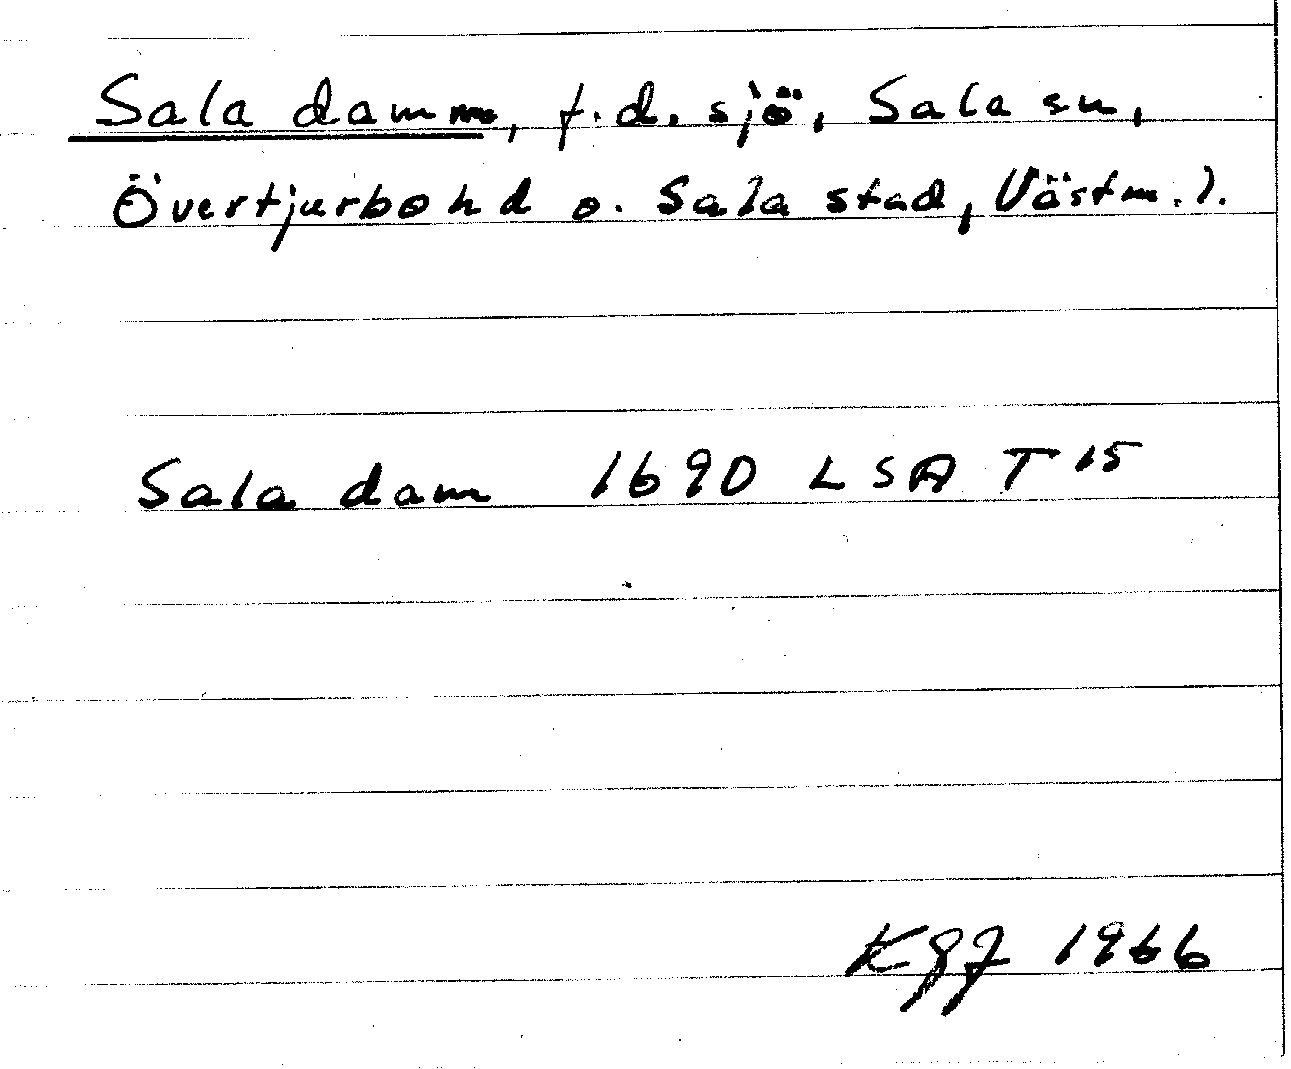 Sala damm, f.d. sjö, Sala sn,
Övertjurbo hd o. Sala stad, Västm.l.
Sala dam 1690 LSA T 15
1966